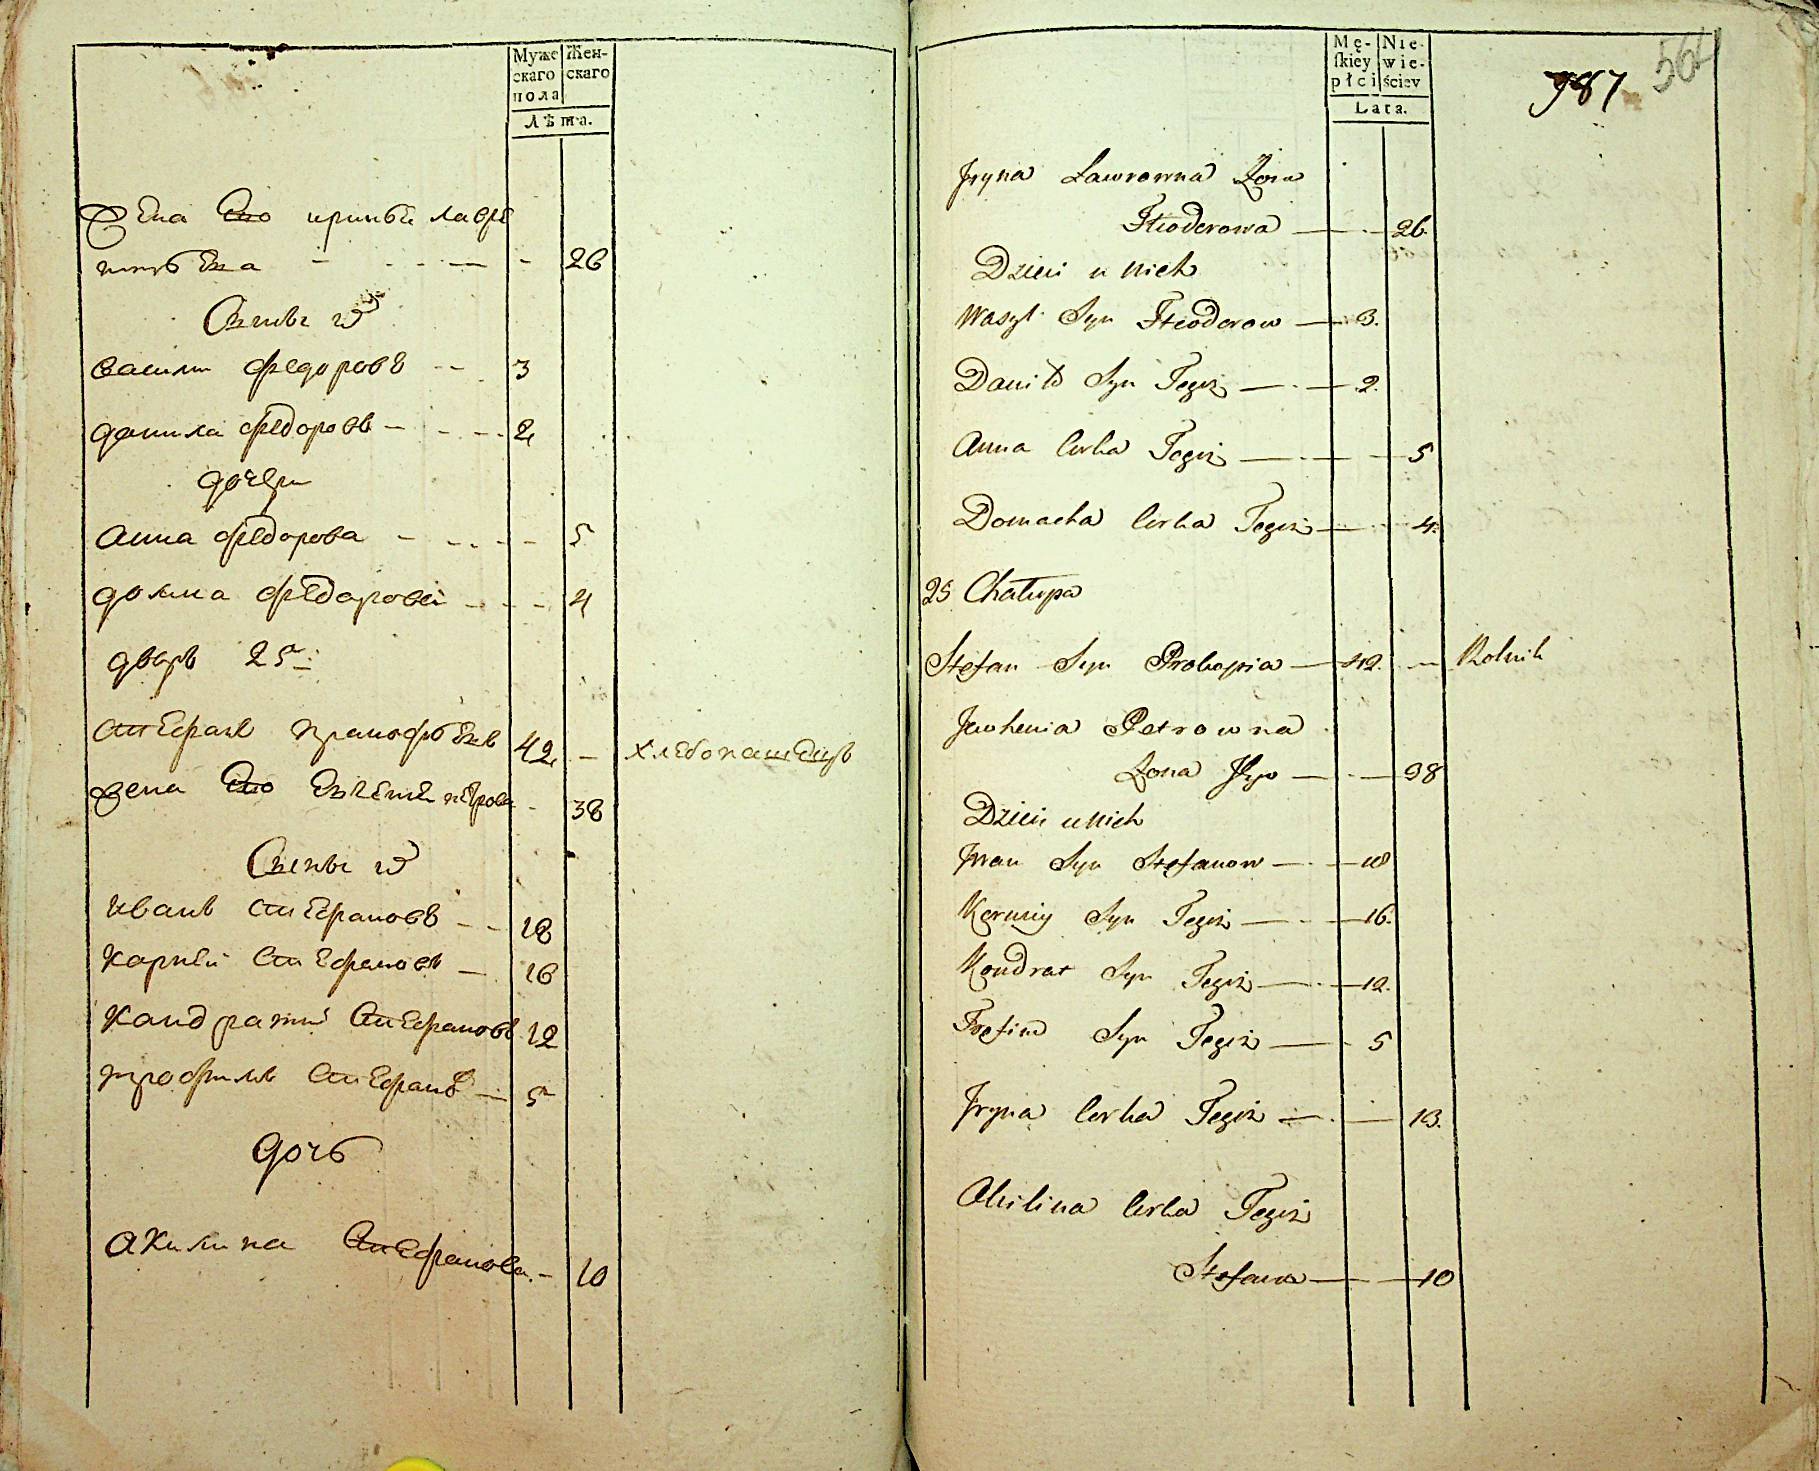 Муже
скаго
пола
Жен-
скаго
Лѣта.
Жена Его ирина лавре
нтьева - 26
Сыны их
василий федоровъ - 3
данила федоровъ - 2
дочери
анна федорова - 5
домна федорова - 4
дворъ 25й
степанъ прокофьевъ 42 - хлебопашецъ
жена Его Евгения петрова - 38
Сыны их
иванъ степановъ - 18
карней степановъ - 16
кандратий степановъ 12
трофимъ степановъ - 5
дочь
акилина степанова - 10
Mę-
skiey
płci
Nie-
wie-
ściey
Lata.
987
564
Jryna Ławrowna Żona
Fteoderowa - 26.
Dzieci u nich
Wasyl Syn Fteoderow - 3.
Daniło Syn Tegoż - 2.
Anna Corka Tegoż - 5
Domacha Corka Tegoż - 4.
25 Chałupa
Stefan Syn Prokopia - 42. - Rolnik
Jewhenia Petrowna
Żona Jego - 38
Dzieci u nich
Jwan Syn Stefanow - 18
Korniy Syn Tegoż - 16.
Kondrat Syn Tegoż - 12.
Trofim Syn Tegoż - 5
Jryna Corka Tegoż - 13.
Akilina Corka Tegoż
Stefana - 10